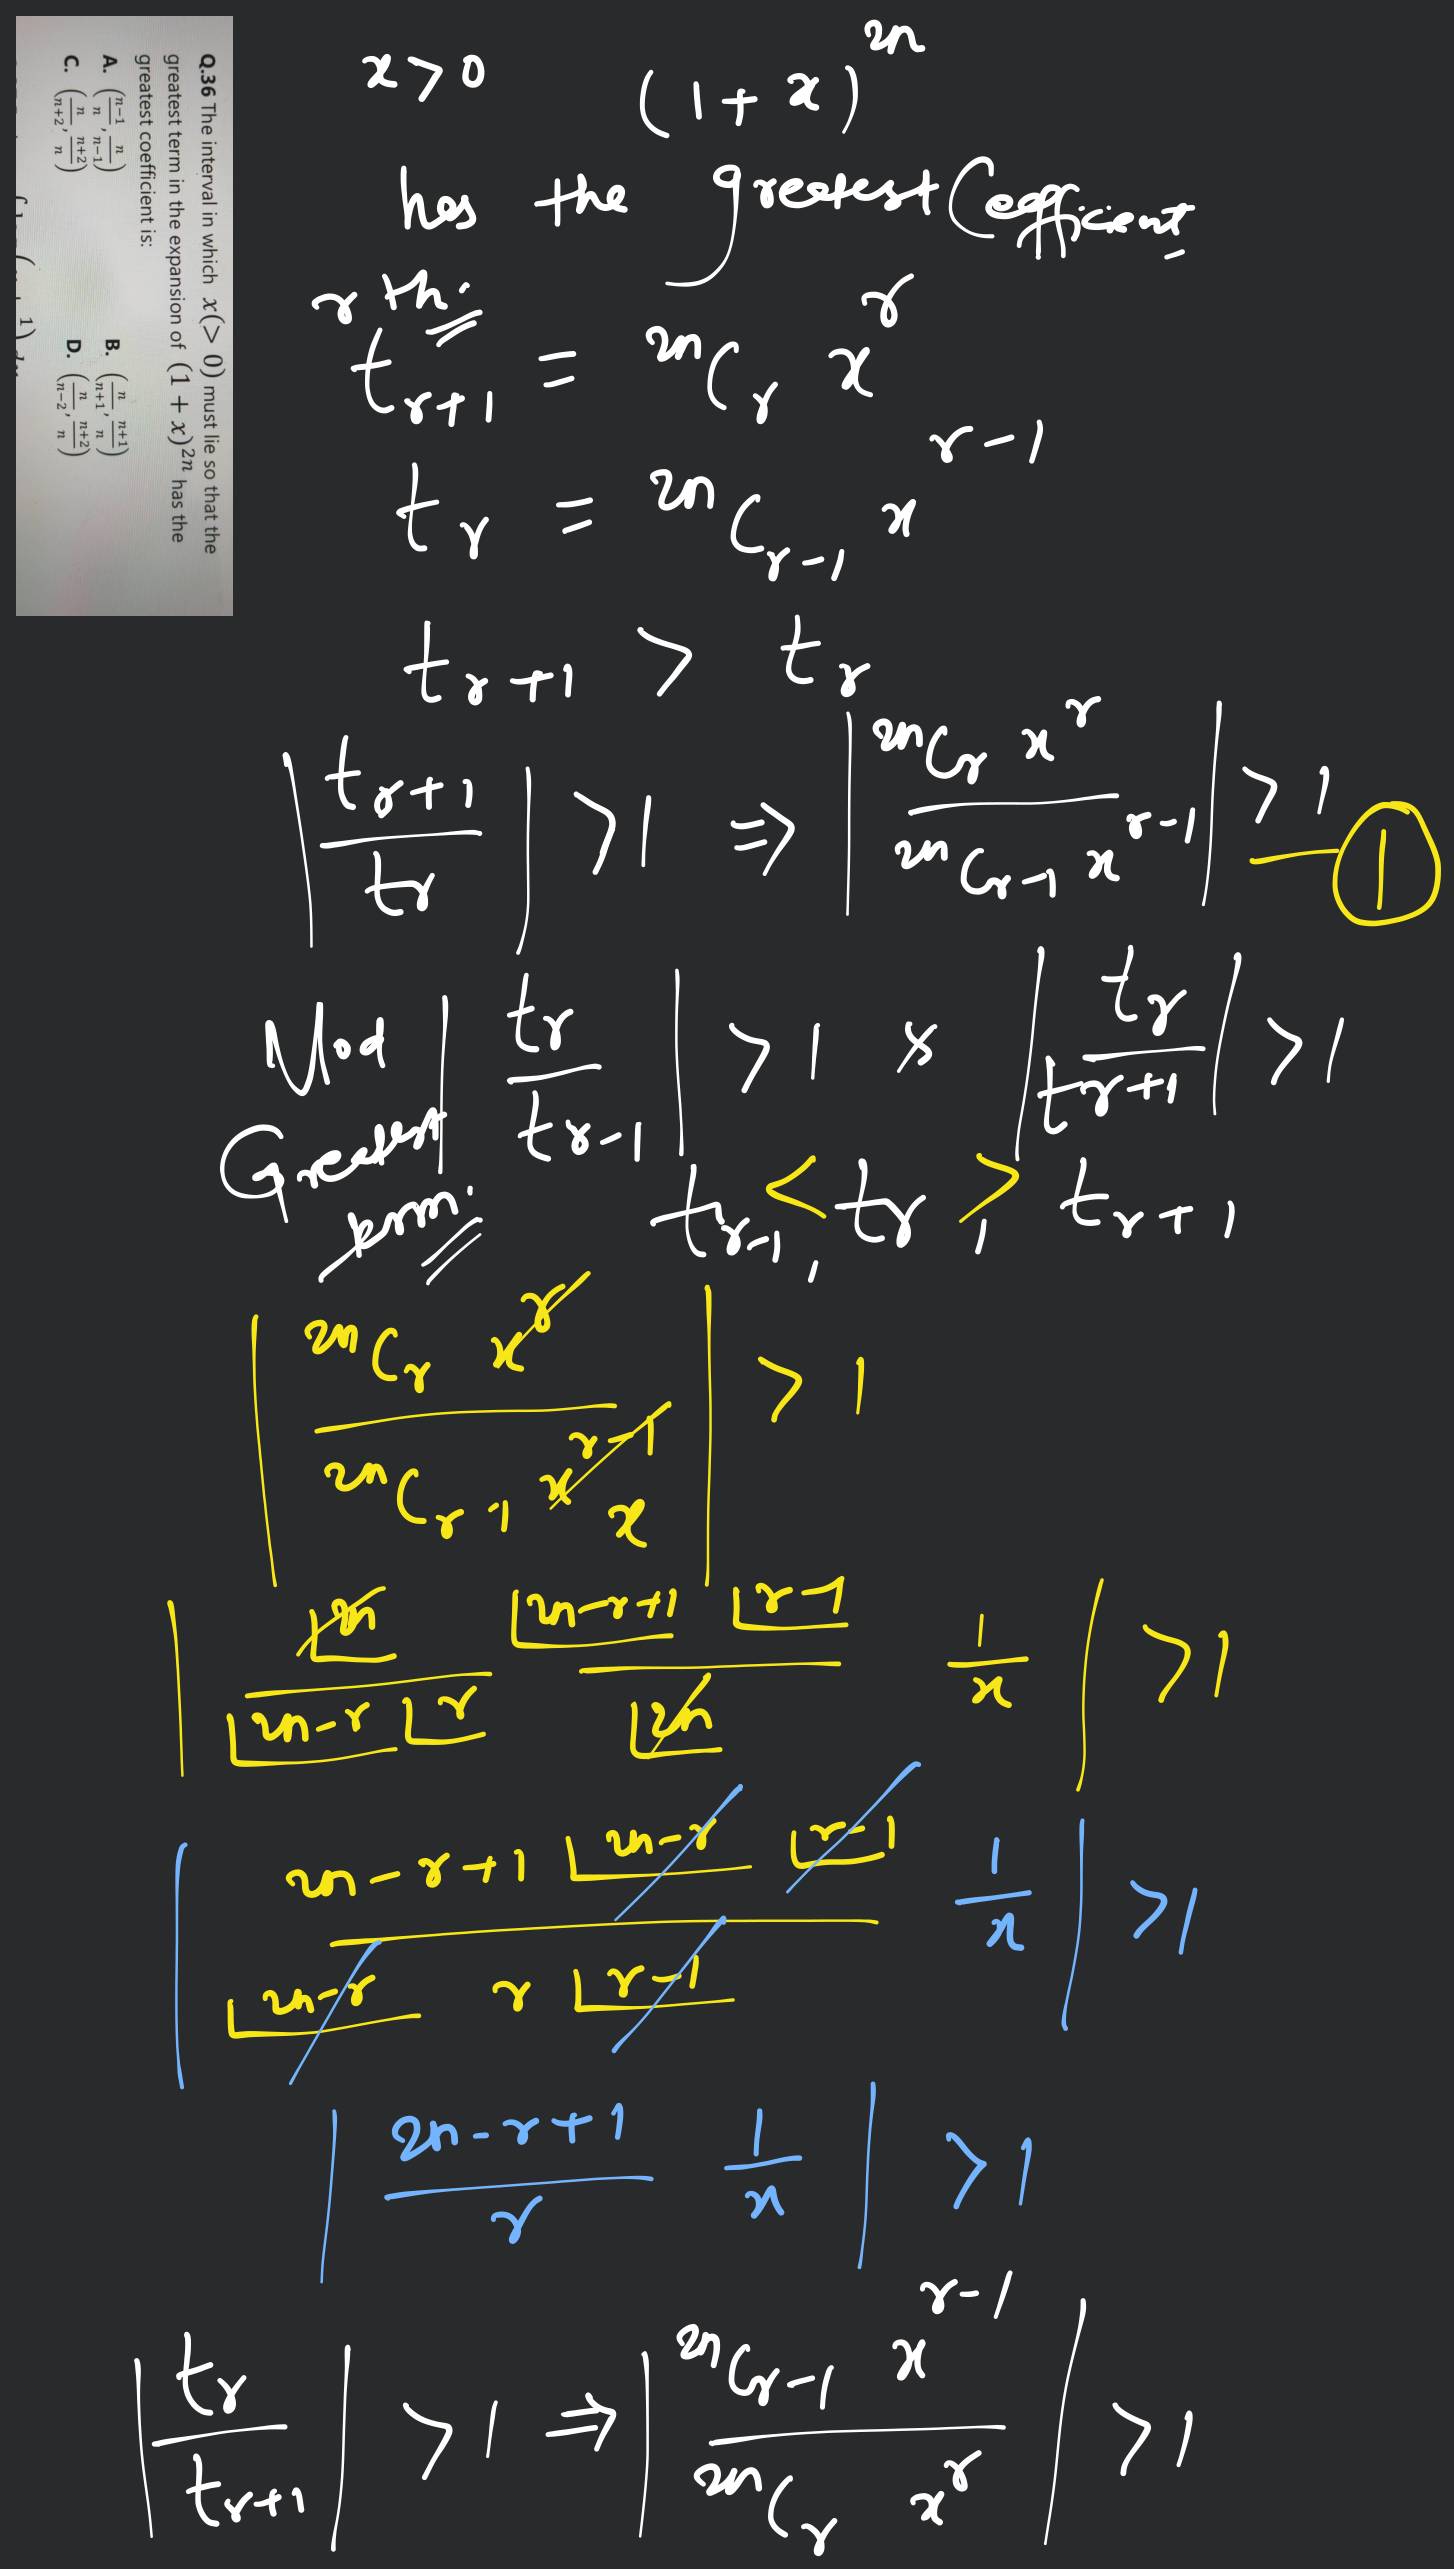 Q.36 The interval in which x(> 0) must lie so that the
greatest term in the expansion of (1 + x)^2n has the
greatest coefficient is:
A. ((n−1)/n, n/(n−1))
B. (n/(n+1), (n+1)/n)
C. (n/(n+2), (n+2)/n)
D. (n/(n−2), (n+2)/n)
x > 0 (1 + x)^2n
has the greatest Coefficient
r th.
t_r+1 = 2nC_r x^r
t_r = 2nC_r-1 x^r-1
t_r+1 > t_r
|t_r+1 / t_r| > 1 ⇒ |2nC_r x^r / 2nC_r-1 x^r-1| > 1 — ①
Mod |t_r / t_r-1| > 1 & |t_r / t_r+1| > 1
Greatest term. t_r-1, < t_r, > t_r+1
|2nC_r x^r / 2nC_r-1 x^r-1 x| > 1
|⌊2n / ⌊2n-r ⌊r ⌊2n-r+1 ⌊r-1 / ⌊2n 1/x| > 1
|2n-r+1 ⌊2n-r ⌊r-1 / ⌊2n-r r ⌊r-1 1/x| > 1
|2n-r+1 / r 1/x| > 1
|t_r / t_r+1| > 1 ⇒ |2nC_r-1 x^r-1 / 2nC_r x^r| > 1